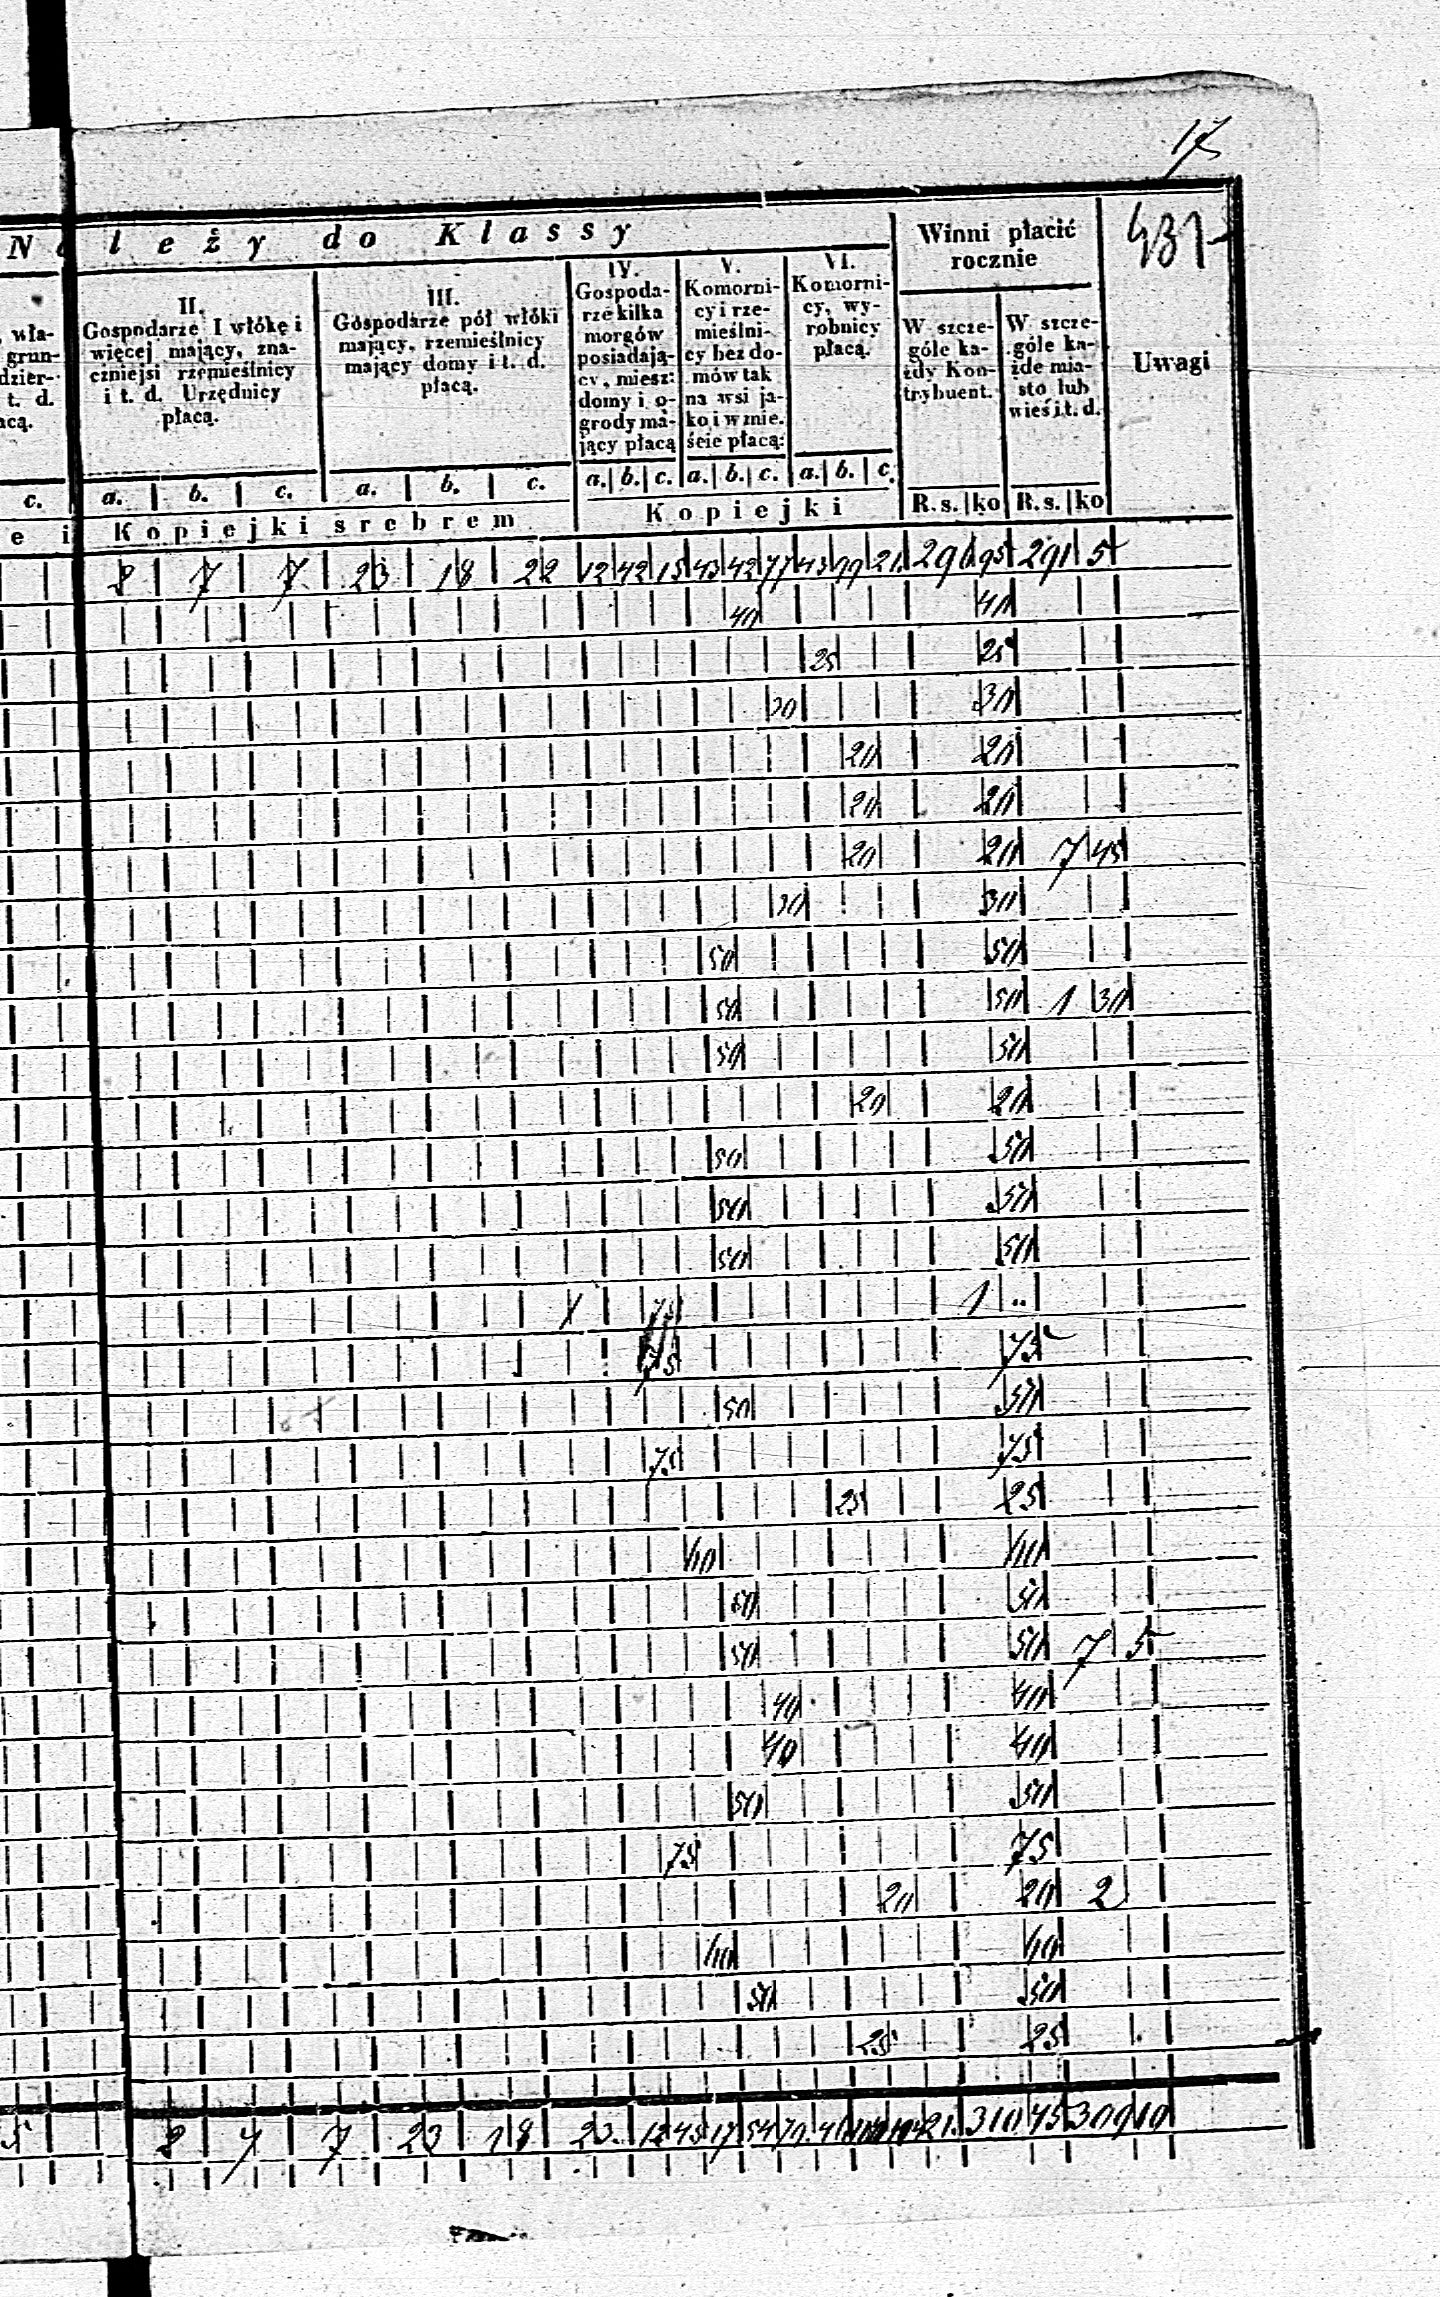 17
Należy do Klassy
Winni płacić rocznie
431
c.
II. Gospodarze 1 włókę i więcej mający, znaczniejsi rzemieślnicy i t. d. Urzędnicy płacą.
III. Gospodarze pół włóki mający, rzemieślnicy mający domy i t. d. płacą.
IV. Gospodarze kilka morgów posiadający, miesz: domy i ogrody mający płacą
V. Komornicy i rzemieślnicy bez domów tak na wsi jako i w mieście płacą:
VI. Komornicy, wyrobnicy płacą.
W szczególe każdy Kontrybuent.
W szczególe każde miasto lub wieś i t. d.
Uwagi
a. b. c. a. b. c. a. b. c. a. b. c. a. b. c. R. s. ko R. s. ko
e i Kopiejki srebrem Kopiejki
2 7 7 23 18 22 12 42 15 43 42 77 43 99 21 290 95 291 5
40 40
25 25
30 30
20 20
20 20
20 20 7 45
30 30
50 50
50 50 1 30
50 50
20 20
50 50
50 50
50 50
1 1 "
75 75
50 50
75 75
25 25
40 40
50 50
50 50 7 5
40 40
40 40
50 50
75 75
20 20 2
40 40
50 50
25 25
5 2 7 7 23 18 23 12 45 17 54 21 310 45 309 10